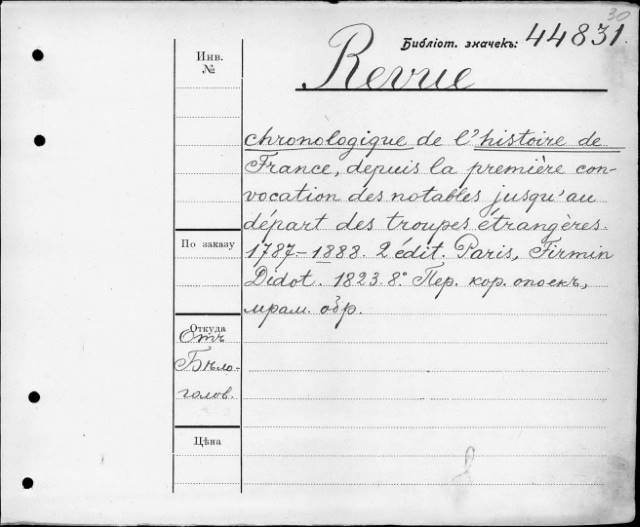 30
Библіот. значекъ: 44831.
Revue
Инв.
№
chronologique de l'histoire de
France, depuis la première con-
vocation des notables jusqu'au
départ des troupes étrangères.
1787–1888. 2 édit. Paris, Firmin
Didot. 1823. 8.° Пер. кор. опоекъ,
мрам. обр.
По заказу
Откуда
Отъ
Бѣло-
голов.
Цѣна